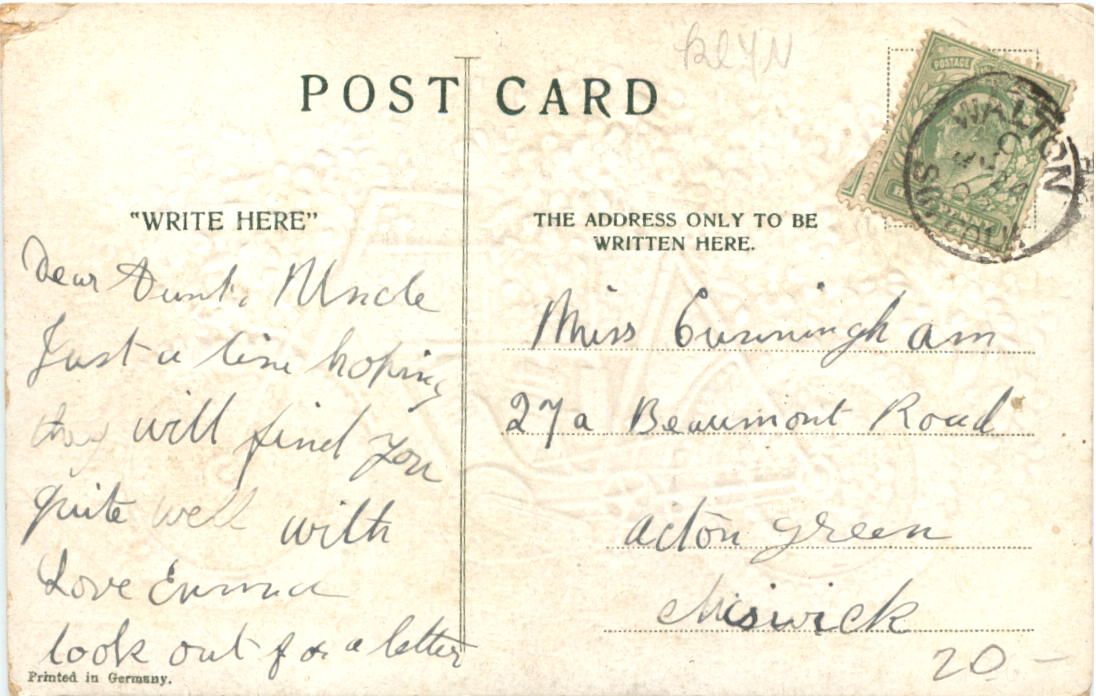 POST CARD
"WRITE HERE"
Dear Aunt & Uncle
Just a line hoping
they will find you
quite well with
Love Emma
look out for a letter
Printed in Germany.
THE ADDRESS ONLY TO BE
WRITTEN HERE.
Miss Cunningham
27a Beaumont Road
Acton Green
Chiswick
20 -
POSTAGE
WALTON